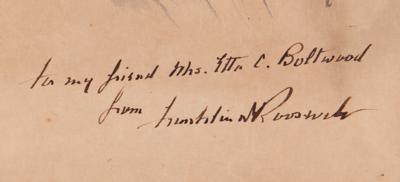 To my friend Mrs. Etta C. Boltwood
from Franklin D Roosevelt